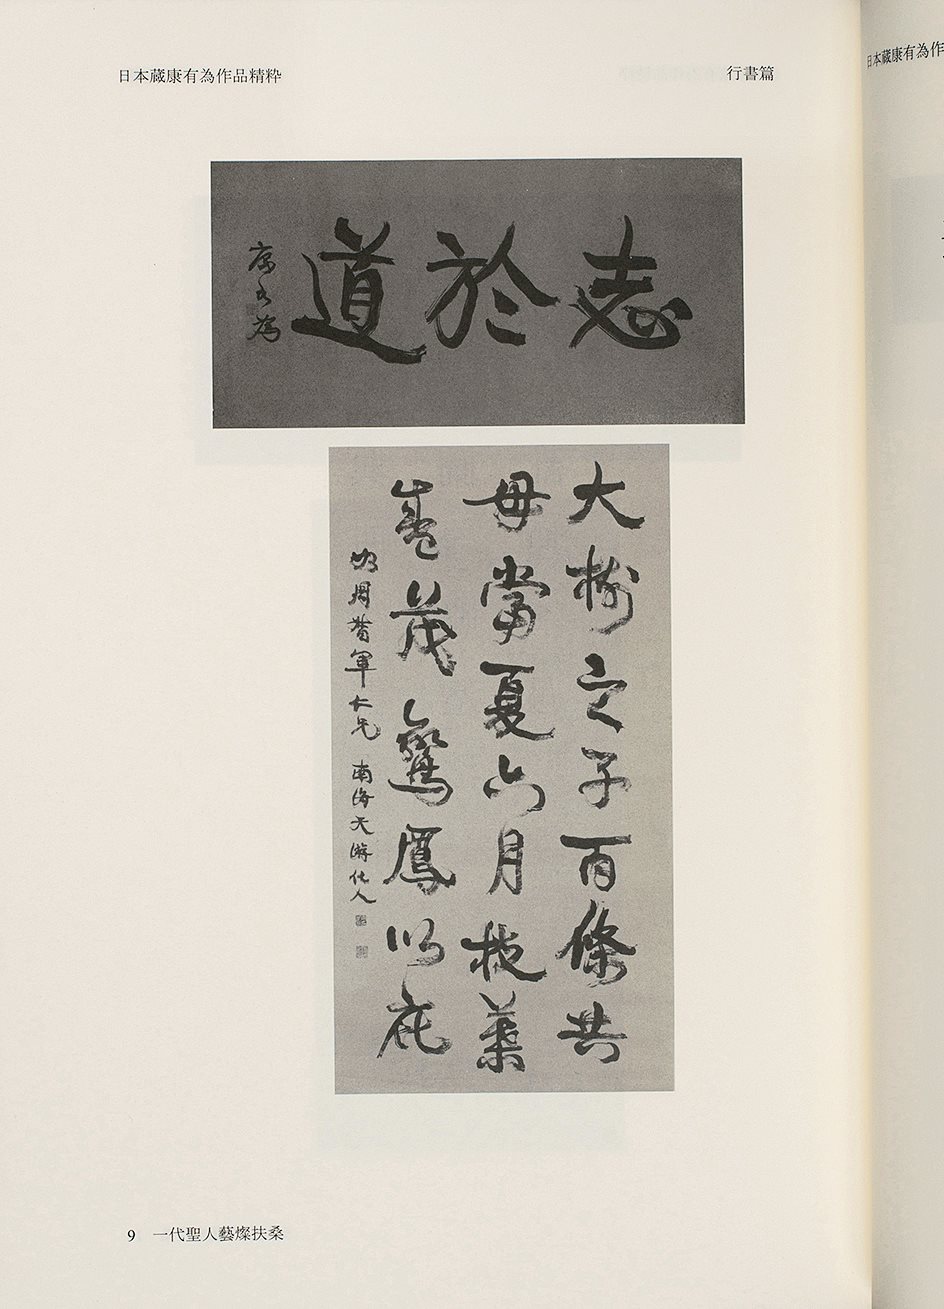 日本蔵康有為作品精粋
行書篇
日本蔵康有為作
志於道
康有為
大樹之子百條共
母當夏六月枝葉
盛茂鸞鳳以庇
周贊軍仁兄 南海天游化人
9 一代聖人藝燦扶桑